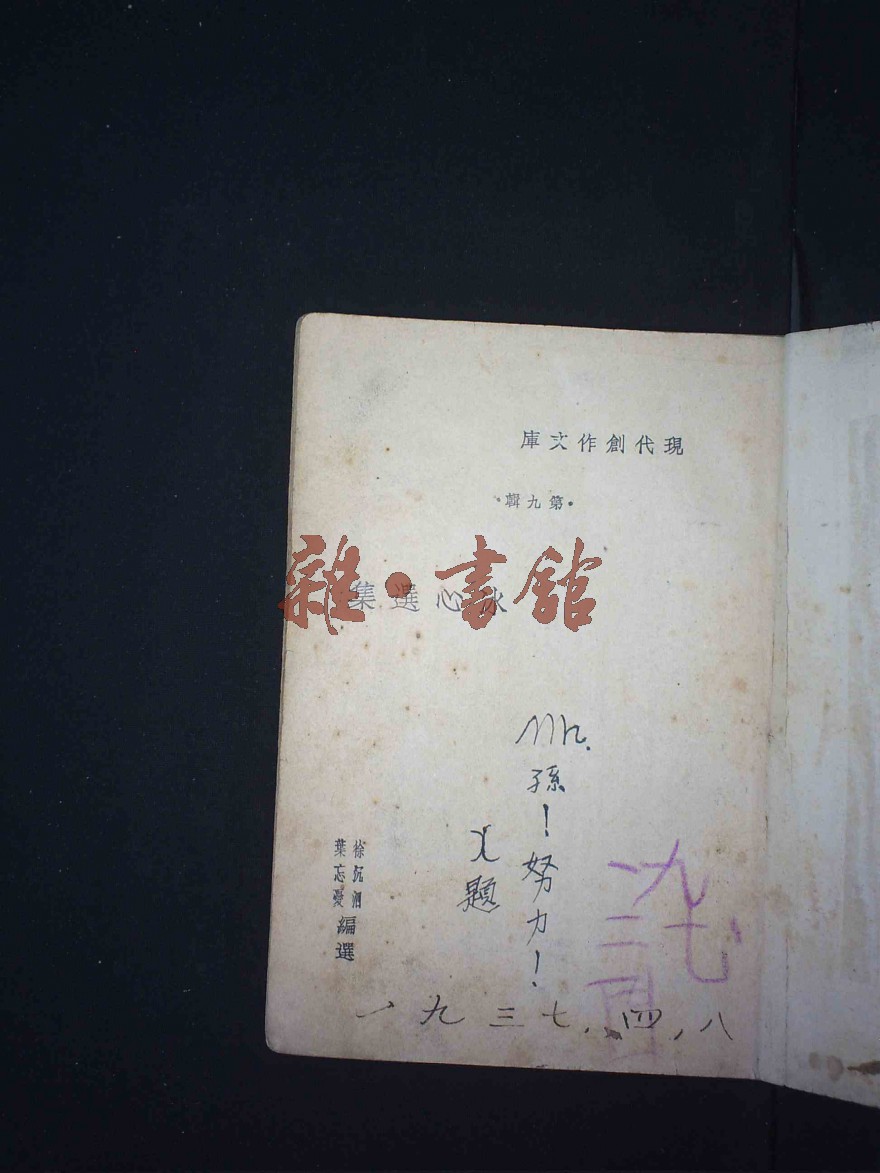 現代創作文庫
·第九輯·
冰心選集
雜·書館
Mr.
孫！努力！
題
徐沉泗
葉忘憂
編選
一九三七，四，八
一九七
二